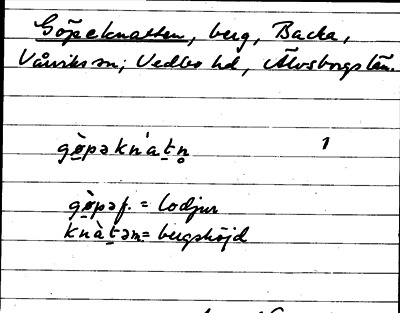 Göpeknatten, berg, Backa,
Vårviks sn; Vedbo hd, Älvsborgs län.
gö̱pəkn'at̠n̥ 1
gö̱pə f. = lodjur
kn̠àt̠ə m = bergshöjd